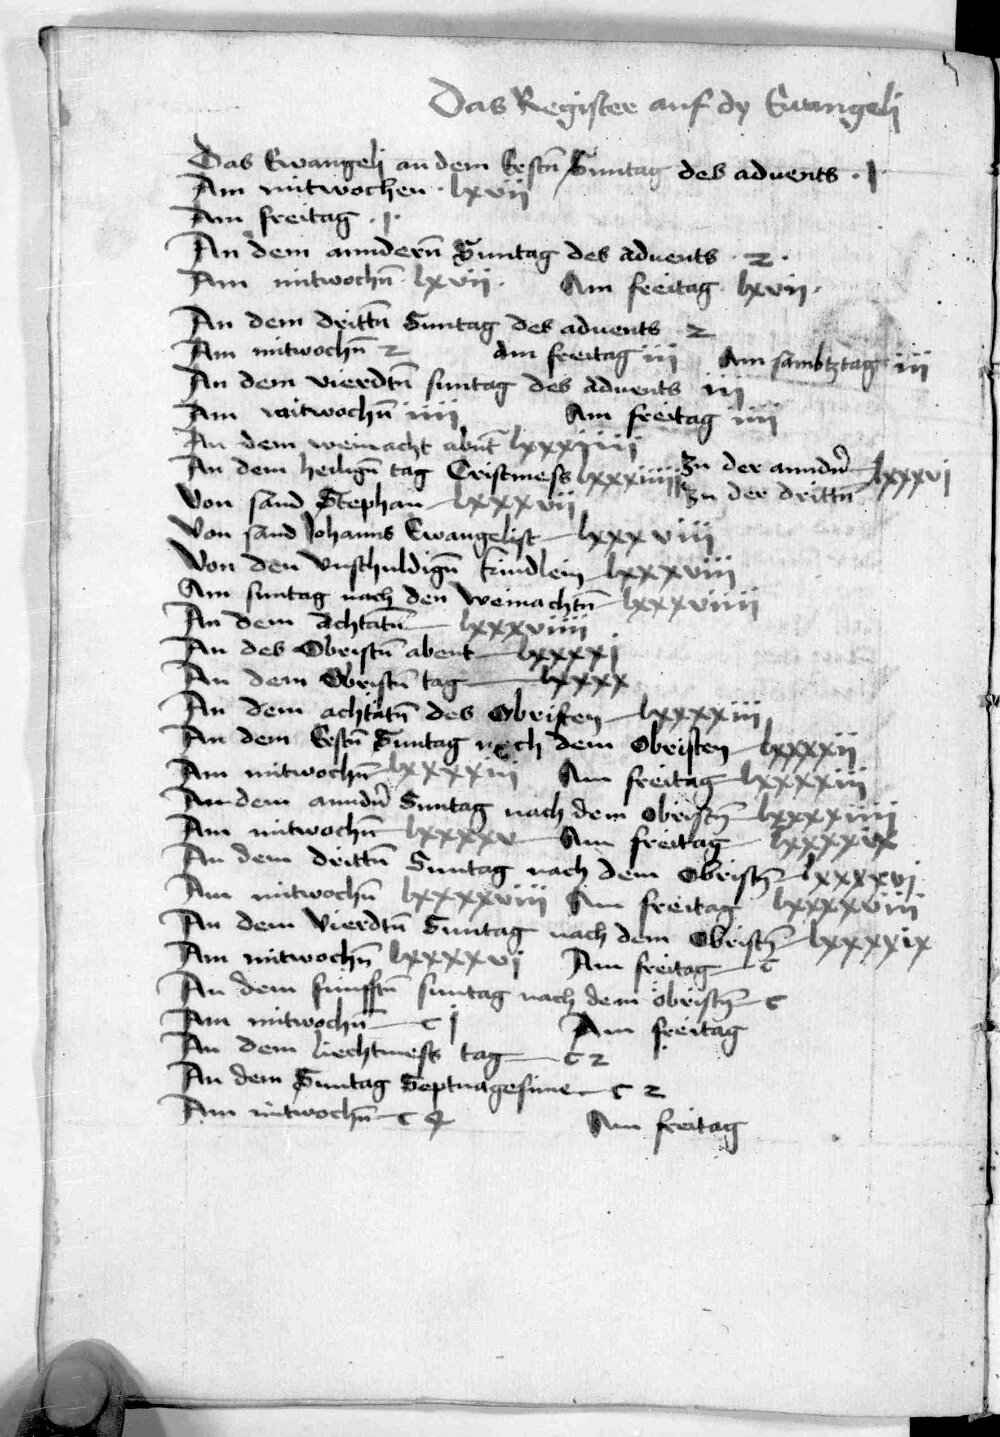 Das Register auf dy Ewangelj
Das Ewangelj an dem Erstn̄ Suntag des aduents . 1 .
Am mitwochen . lxvij
Am freitag . 1 .
An dem anndern̄ Suntag des aduents . 2 .
Am mitwochn̄ . lxvij . Am freitag . lxvij .
An dem drittn̄ Suntag des aduents 2
Am mitwochn̄ 2 Am freitag iij Am sambtztag iij
An dem vierdtn̄ suntag des aduents iij
Am mitwochn̄ iiij Am freitag iiij
An dem weinacht abn̄t lxxxiiij
An dem heilign̄ tag Cristmess lxxxiiij Zu der anndn̄ lxxxvj
Zu der drittn̄
Von sand Stephan lxxxvij
Von sand Johanns Ewangelist lxxxviij
Von den vnschuldign̄ kindlein lxxxviij
Am suntag nach den Weinachtn̄ lxxxviiij
An dem achtatn̄ lxxxviiij
An des Obristn̄ abent lxxxxj
An dem Obristn̄ tag lxxxx
An dem achtātn̄ des Obristen lxxxxiij
An dem Erstn̄ Suntag nach dem Obristen lxxxxij
Am mitwochn̄ lxxxxiij Am freitag lxxxxiij
An dem anndn̄ Suntag nach dem Obristn̄ lxxxxiiij
Am mitwochn̄ lxxxxv Am freitag
An dem drittn̄ Suntag nach dem Obristn̄ lxxxxvj
Am mitwochn̄ lxxxxviij Am freitag lxxxxviij
An dem Vierdtn̄ Suntag nach dem Obristn̄ lxxxxix
Am mitwochn̄ lxxxxvj Am freitag c
An dem funfftn̄ suntag nach dem obristn̄ c
Am mitwochn̄ c j Am freitag
An dem liechtmess tag c 2
An dem Suntag Septuagesime c 2
Am mitwochn̄ c 4 Am freitag